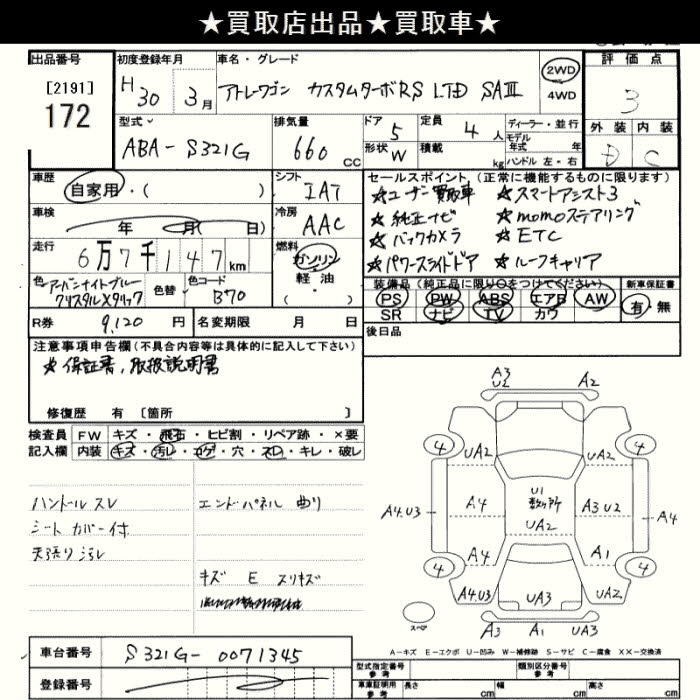 ★買取店出品★買取車★
出品番号
[2191]
172
初度登録年月
H30 3月
車名・グレード
アトレーワゴン カスタムターボRS LTD SAⅢ
2WD
4WD
評価点
3
外装 内装
D C
型式
ABA-S321G
排気量
660 cc
ドア 5
形状 W
定員 4 人
積載 kg
ディーラー・並行
モデル年式 年
ハンドル 左・右
車歴
自家用・( )
シフト
IAT
車検
年 月( 日)
冷房
AAC
走行
6万7千147km
燃料
ガソリン
軽油
( )
色
アーバンナイトブルークリスタルメタリック
色替
色コード
B70
R券 9,120 円
名変期限 月 日
セールスポイント (正常に機能するものに限ります)
☆ユーザー買取車 ☆スマートアシスト3
☆純正ナビ ☆momoステアリング
☆バックカメラ ☆ETC
☆パワースライドドア ☆ルーフキャリア
装備品(純正品に限り○をつけてください)
PS PW ABS エアB AW
SR ナビ TV カワ
新車保証書
有・無
後日品
注意事項申告欄(不具合内容等は具体的に記入して下さい)
☆保証書、取扱説明書
修復歴 有 [箇所 ]
検査員記入欄
FW キズ・飛石・ヒビ割・リペア跡・×要
内装 キズ・汚レ・コゲ・穴・スレ・キレ・破レ
ハンドルスレ
シートカバー付
天張り汚レ
エンドパネル曲り
キズ E スリキズ
A3
U2
A2
4
UA2
UA2
4
A4.U3
A4
U1
数ヶ所
UA2
A3 U2
A4
4
A4
A1
4
A4.U3
UA3
UA2
スペア
A3 A1 UA3
A-キズ E-エクボ U-凹み W-補修跡 S-サビ C-腐食 XX-交換済
車台番号
S321G-0071345
登録番号
型式指定番号
参考
類別区分番号
参考
車庫証明用
参考
長さ cm 幅 cm 高さ cm